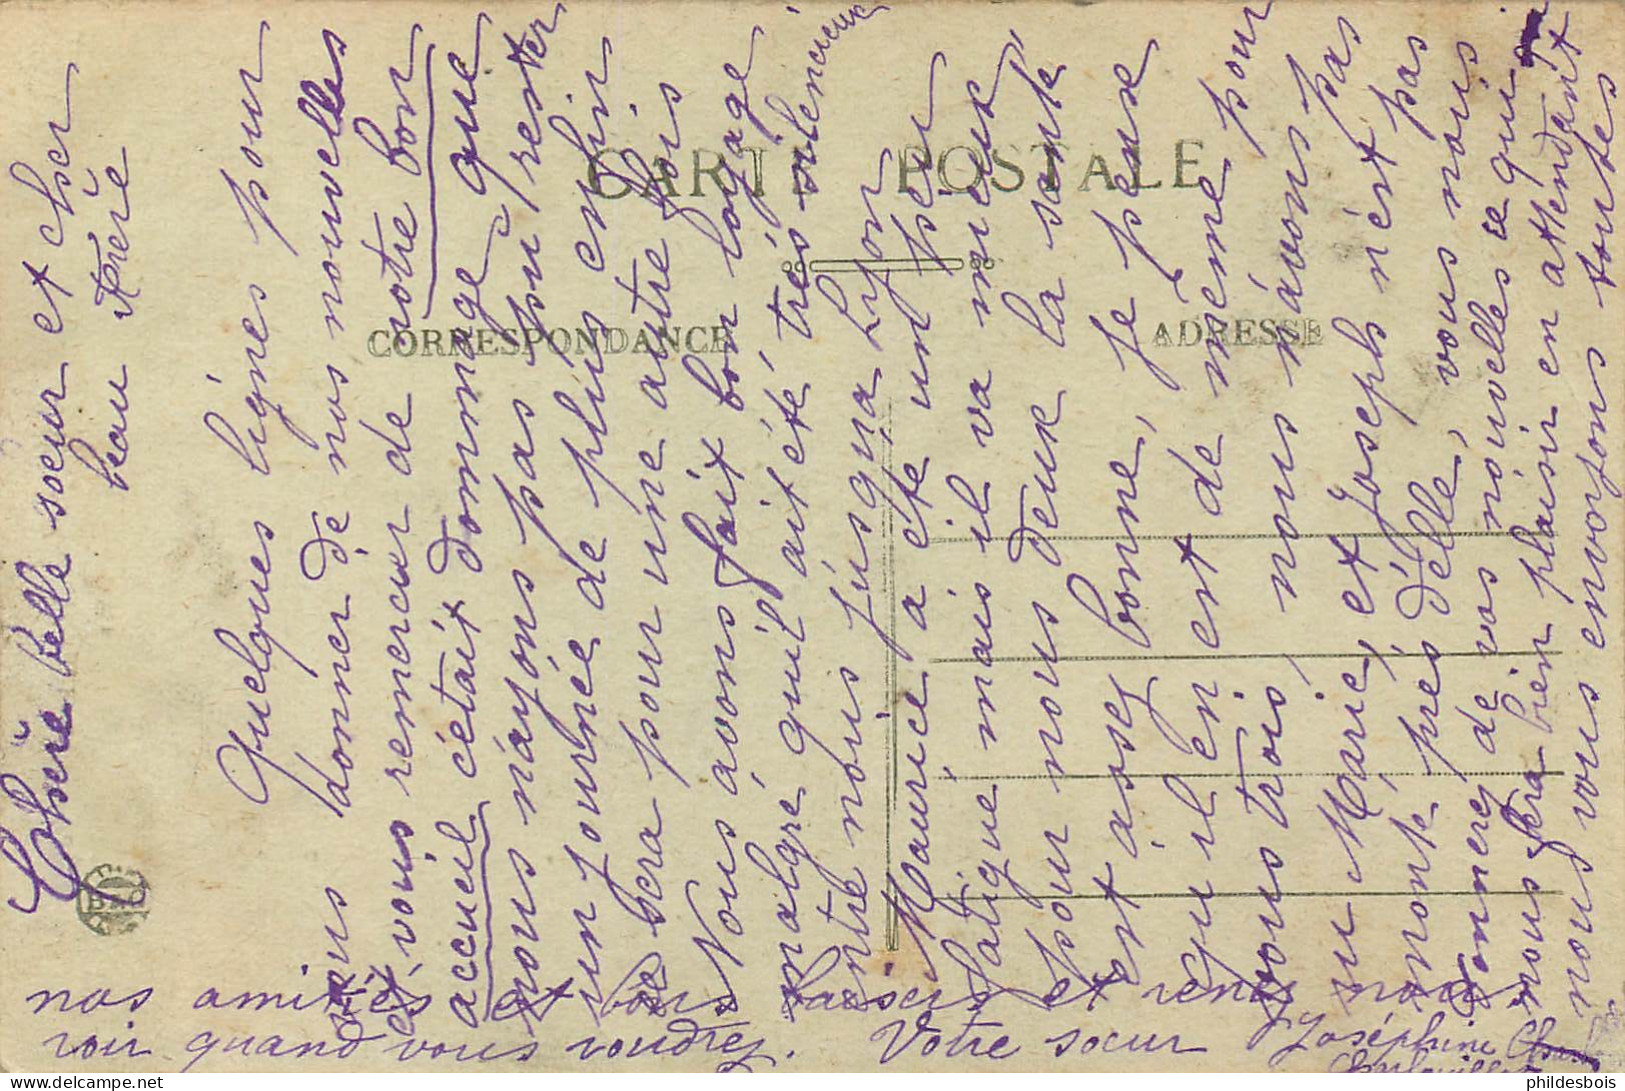 CARTE POSTALE
CORRESPONDANCE
ADRESSE
Chère belle soeur et cher
beau frère
Quelques lignes pour
vous donner de nos nouvelles
et vous remercier de votre bon
accueil c'était dommage que
nous n'ayons pas pu rester
un journée de plus enfin
se sera pour une autre fois
Nous avons fait bon voyage
malgré qu'il ait été très silencieux
entre nous jusqu'a Lyon
Maurice a été un peu
fatigué mais il va mieux,
pour nous deux la santé
est assez bonne, je peux
qu'il en est de même pour
vous trois, nous n'avons pas
vu Marie, et Joseph n'est pas
monté près d'elle, vous nous
donnerez de vos nouvelles ce qui
nous fera bien plaisir en attendant
nous vous envoyons toutes
nos amitiés et bons baisers et venez nous
voir quand vous voudrez. Votre soeur Joséphine
BZD
Delcampe.net
phildesbois